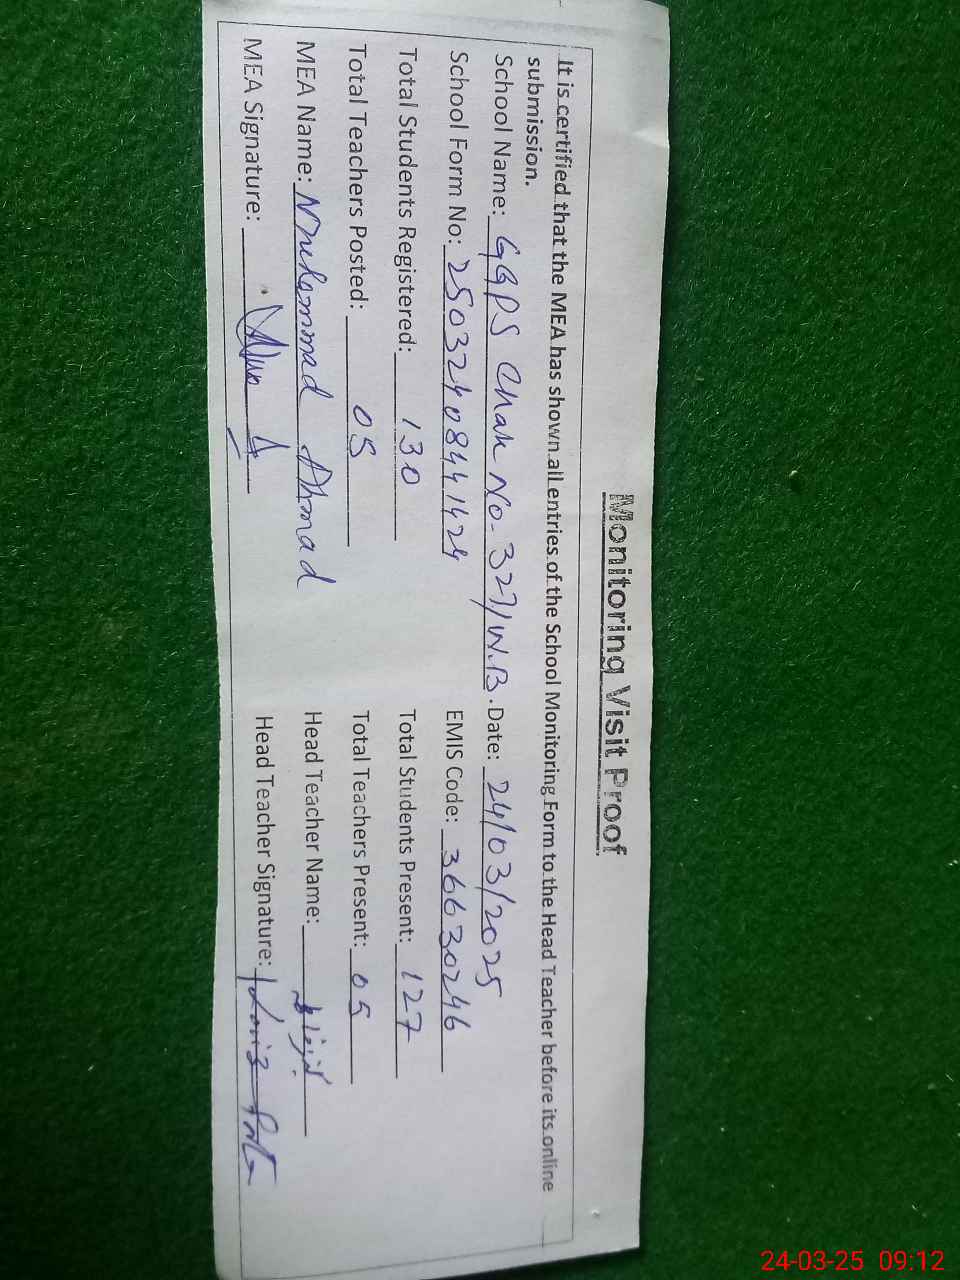 Monitoring Visit Proof
It is certified that the MEA has shown all entries of the School Monitoring Form to the Head Teacher before its online
submission.
School Name: GGPS Chak No- 327/W.B. Date: 24/03/2025
School Form No: 25032408441424 EMIS Code: 36630246
Total Students Registered: 130 Total Students Present: 127
Total Teachers Posted: 05 Total Teachers Present: 05
MEA Name: Muhammad Ahmad Head Teacher Name:
MEA Signature: Head Teacher Signature:
24-03-25 09:12